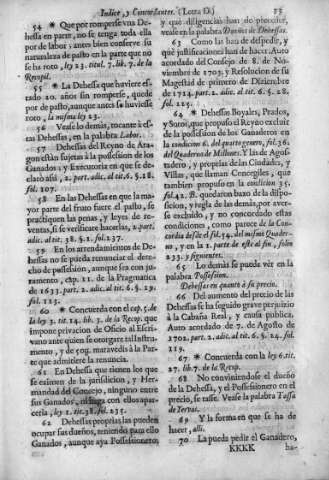 Indice, y Concordantes. (Letra D.) 25
54 * Que por romperse vna De-
hessa en parte, no se tenga toda ella
por de labor; antes bien conserve su
naturaleza de pasto en la parte que no
se ha roto, ley 23. titul. 7. lib. 7. de la
Recopil.
55 * La Dehessa que huviere es-
tado 20. años sin romperse, quede
por de pasto, aunque antes se huviesse
roto, la misma ley 23.
56 Vease lo demás, tocante à es-
tas Dehessas, en la palabra Labor.
57 Dehessas del Reyno de Ara-
gon están sujetas à la possession de los
Ganados; y Executoria en que se de-
claró assi, 2. part. adic. al tit. 6. §. 18.
fol. 107.
58 En las Dehessas en que la ma-
yor parte del fruto fuere el pasto, se
practiquen las penas, y leyes de re-
ventas, si se verificate hacerlas, 2. part.
adic. al tit. 38. §. 1. fol. 237.
59 En los arrendamientos de De-
hessas no se pueda renunciar el dere-
cho de possession, aunque sea con ju-
ramento, cap. 11. de la Pragmatica
de 1633. part. 2. adic. al tit. 6. §. 29.
fol.
60 * Concuerda con el cap. 5. de
la ley 3. tit. 14. lib. 3. de la Recop. que
impone privacion de Oficio al Escri-
vano ante quien se otorgare tal Instru-
mento, y de 50y. maravedis à la Par-
te que admitiere la renuncia.
61 En Dehessa que tienen los que
se eximen de la jurisdicion, y Her-
mandad del Concejo, ninguno entre
sus Ganados, con ellos apar-
cería, ley 1. tit. 38. fol. 235.
62 Dehessas proprias las pueden
ocupar sus dueños, teniendo para ello
Ganados, aunque aya Possessionero,
y que diligencias han de preceder,
vease en la palabra Dueños de Dehessas.
63 Como las han de despedir, y
què justificaciones han de hacer: Auto
acordado del Consejo de 8. de No-
viembre de 1703. y Resolucion de su
Magestad de primero de Diziembre
de 1714. part. 2. adic. al tit. 6. §. 28.
fol. 125.
64 * Dehessas Boyales, Prados,
y Sotos, que propuso el Reyno excluir
de la possession de los Ganaderos en
la condicion 6. del quarto genero, fol. 36.
del Quaderno de Millones. Y las de Agos-
tadero, y proprias de las Ciudades, y
Villas, que llaman Concegiles, que
tambien propuso en la condicion 35.
fol. 42. B. quedaron baxo de la dispo-
sicion, y regla de las demás, por aver-
se excluìdo, y no concordado estas
condiciones, como parece de la Con-
cordia desde el fol. 54. del mismo Quader-
no, y en la 2. parte de este al fin, folio
233. y siguientes.
65 Lo demás se puede vèr en la
palabra Possession.
Dehessas en quanto à su precio.
66 Del aumento del precio de las
Dehessas se ha seguido grave perjuizio
à la Cabaña Real, y causa publica.
Auto acordado de 7. de Agosto de
1702. part. 2. adic. al tit. 6. §. 24. fol.
119.
67 * Concuerda con la ley 6. tit.
27. lib. 7. de la Recop.
68 No conviniendose el dueño
de la Dehessa, y el Possessionero en el
precio, se tasse. Vease la palabra Tassa
de Yervas.
69 Y la forma en que se ha de
hacer, alli.
70 La pueda pedir el Ganadero,
KKKK ha-